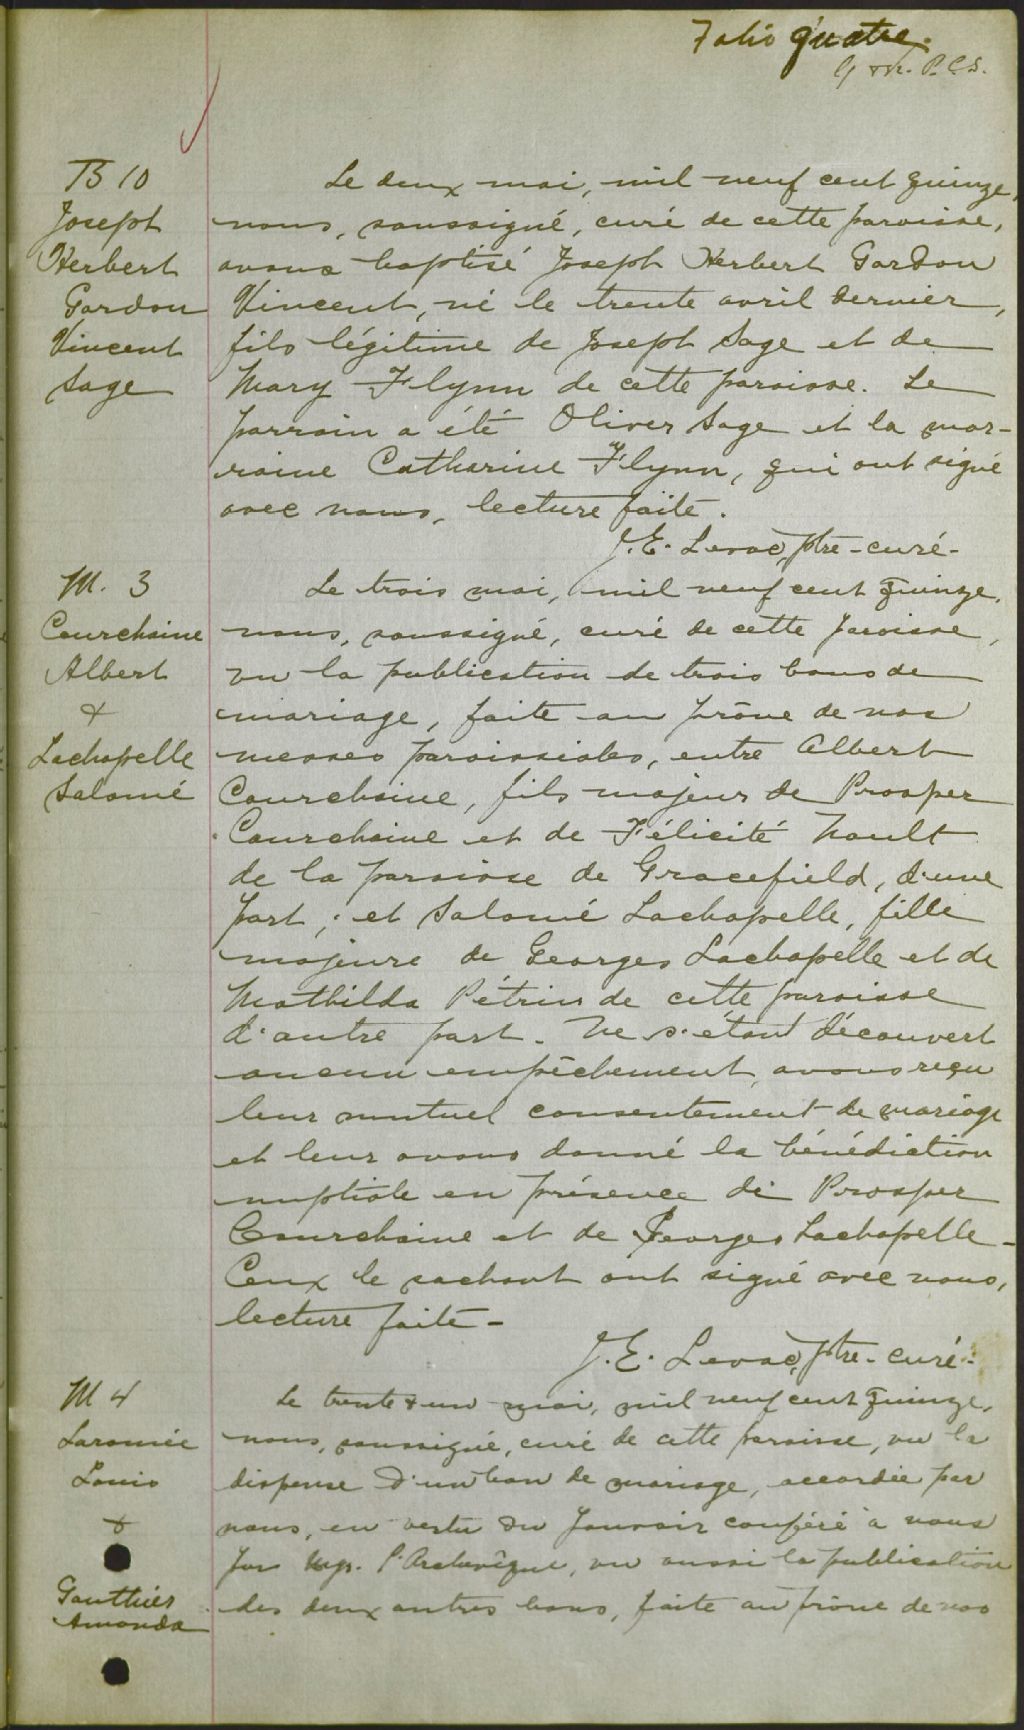 Folio quatre.
P.C.S.
B 10
Joseph
Herbert
Gordon
Vincent
Sage
Le deux mai, mil neuf cent quinze,
nous, soussigné, curé de cette paroisse,
avons baptisé Joseph Herbert Gordon
Vincent, né le trente avril dernier,
fils légitime de Joseph Sage et de
Mary Flynn de cette paroisse. Le
parrain a été Oliver Sage et la mar-
raine Catharine Flynn, qui ont signé
avec nous, lecture faite.
J. E. Levac, ptre-curé-
M. 3
Courchaine
Albert
&
Lachapelle
Salomé
Le trois mai, mil neuf cent quinze,
nous, soussigné, curé de cette paroisse,
vu la publication de trois bans de
mariage, faite au prône de nos
messes paroissiales, entre Albert
Courchaine, fils majeur de Prosper
Courchaine et de Félicité Nault
de la paroisse de Gracefield, d'une
part; et Salomé Lachapelle, fille
majeure de Georges Lachapelle et de
Mathilda Pétrin de cette paroisse
d'autre part. Ne s'étant découvert
aucun empêchement, avons reçu
leur mutuel consentement de mariage
et leur avons donné la bénédiction
nuptiale en présence de Prosper
Courchaine et de Georges Lachapelle-
Ceux le sachant ont signé avec nous,
lecture faite-
J. E. Levac, ptre-curé-
M 4
Laramée
Louis
&
Gauthier
Amanda
Le trente & un mai, mil neuf cent quinze,
nous, soussigné, curé de cette paroisse, vu la
dispense d'un ban de mariage, accordée par
nous, en vertu du pouvoir conféré à nous
par Mgr. l'Archevêque, vu aussi la publication
des deux autres bans, faite au prône de nos